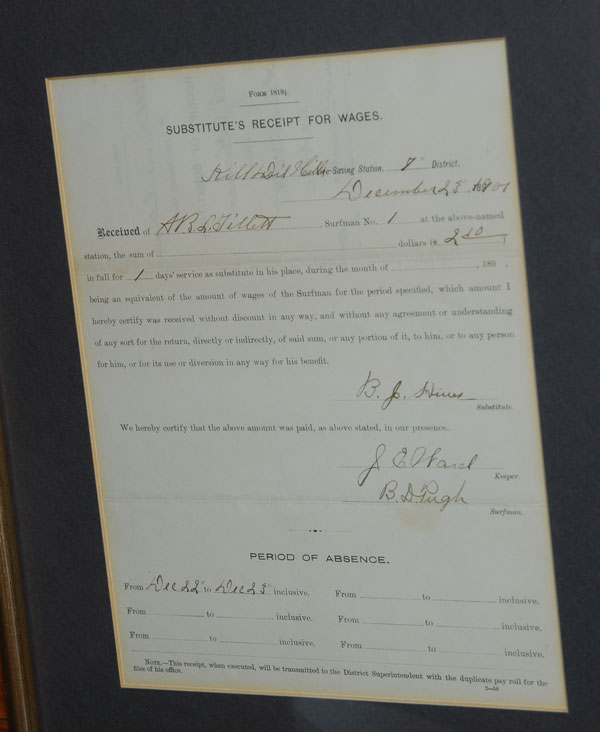 FORM 1819j.
SUBSTITUTE'S RECEIPT FOR WAGES.
Kill Devil Hills Life-Saving Station, 7" District,
December 23", 1901
Received of A B L Tillett, Surfman No. 1 at the above-named
station, the sum of dollars ($ 2.00)
in full for 1 days' service as substitute in his place, during the month of , 189 ,
being an equivalent of the amount of wages of the Surfman for the period specified, which amount I
hereby certify was received without discount in any way, and without any agreement or understanding
of any sort for the return, directly or indirectly, of said sum, or any portion of it, to him, or to any person
for him, or for its use or diversion in any way for his benefit.
B. J. Hines
Substitute.
We hereby certify that the above amount was paid, as above stated, in our presence.
J E Ward
Keeper.
B. D. Pugh
Surfman.
PERIOD OF ABSENCE.
From Dec 22" to Dec 23" inclusive. From to inclusive.
From to inclusive. From to inclusive.
From to inclusive. From to inclusive.
NOTE.—This receipt, when executed, will be transmitted to the District Superintendent with the duplicate pay roll for the
files of his office.